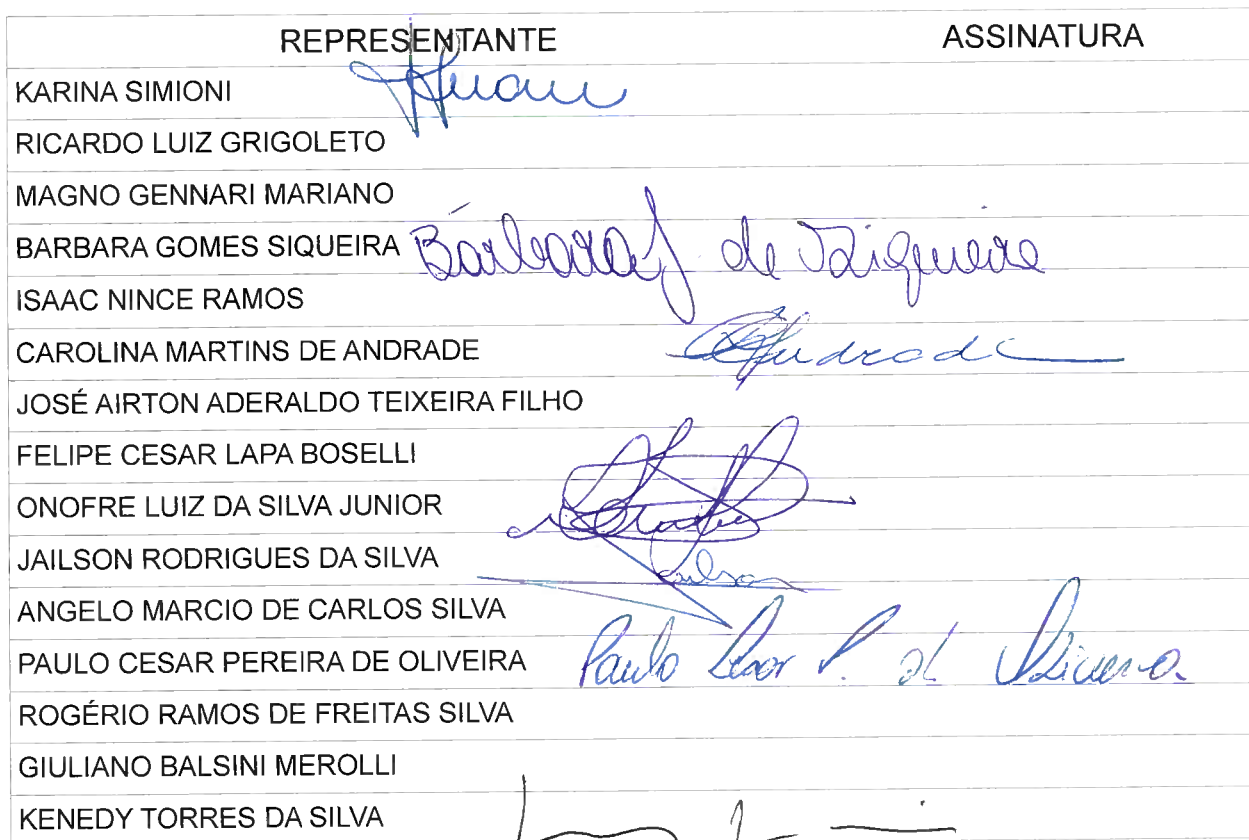 REPRESENTANTE ASSINATURA
KARINA SIMIONI
RICARDO LUIZ GRIGOLETO
MAGNO GENNARI MARIANO
BARBARA GOMES SIQUEIRA Bárbara G de Siqueira
ISAAC NINCE RAMOS
CAROLINA MARTINS DE ANDRADE Andrade
JOSÉ AIRTON ADERALDO TEIXEIRA FILHO
FELIPE CESAR LAPA BOSELLI
ONOFRE LUIZ DA SILVA JUNIOR
JAILSON RODRIGUES DA SILVA Jailson
ANGELO MARCIO DE CARLOS SILVA
PAULO CESAR PEREIRA DE OLIVEIRA Paulo Cesar P. de Oliveira
ROGÉRIO RAMOS DE FREITAS SILVA
GIULIANO BALSINI MEROLLI
KENEDY TORRES DA SILVA